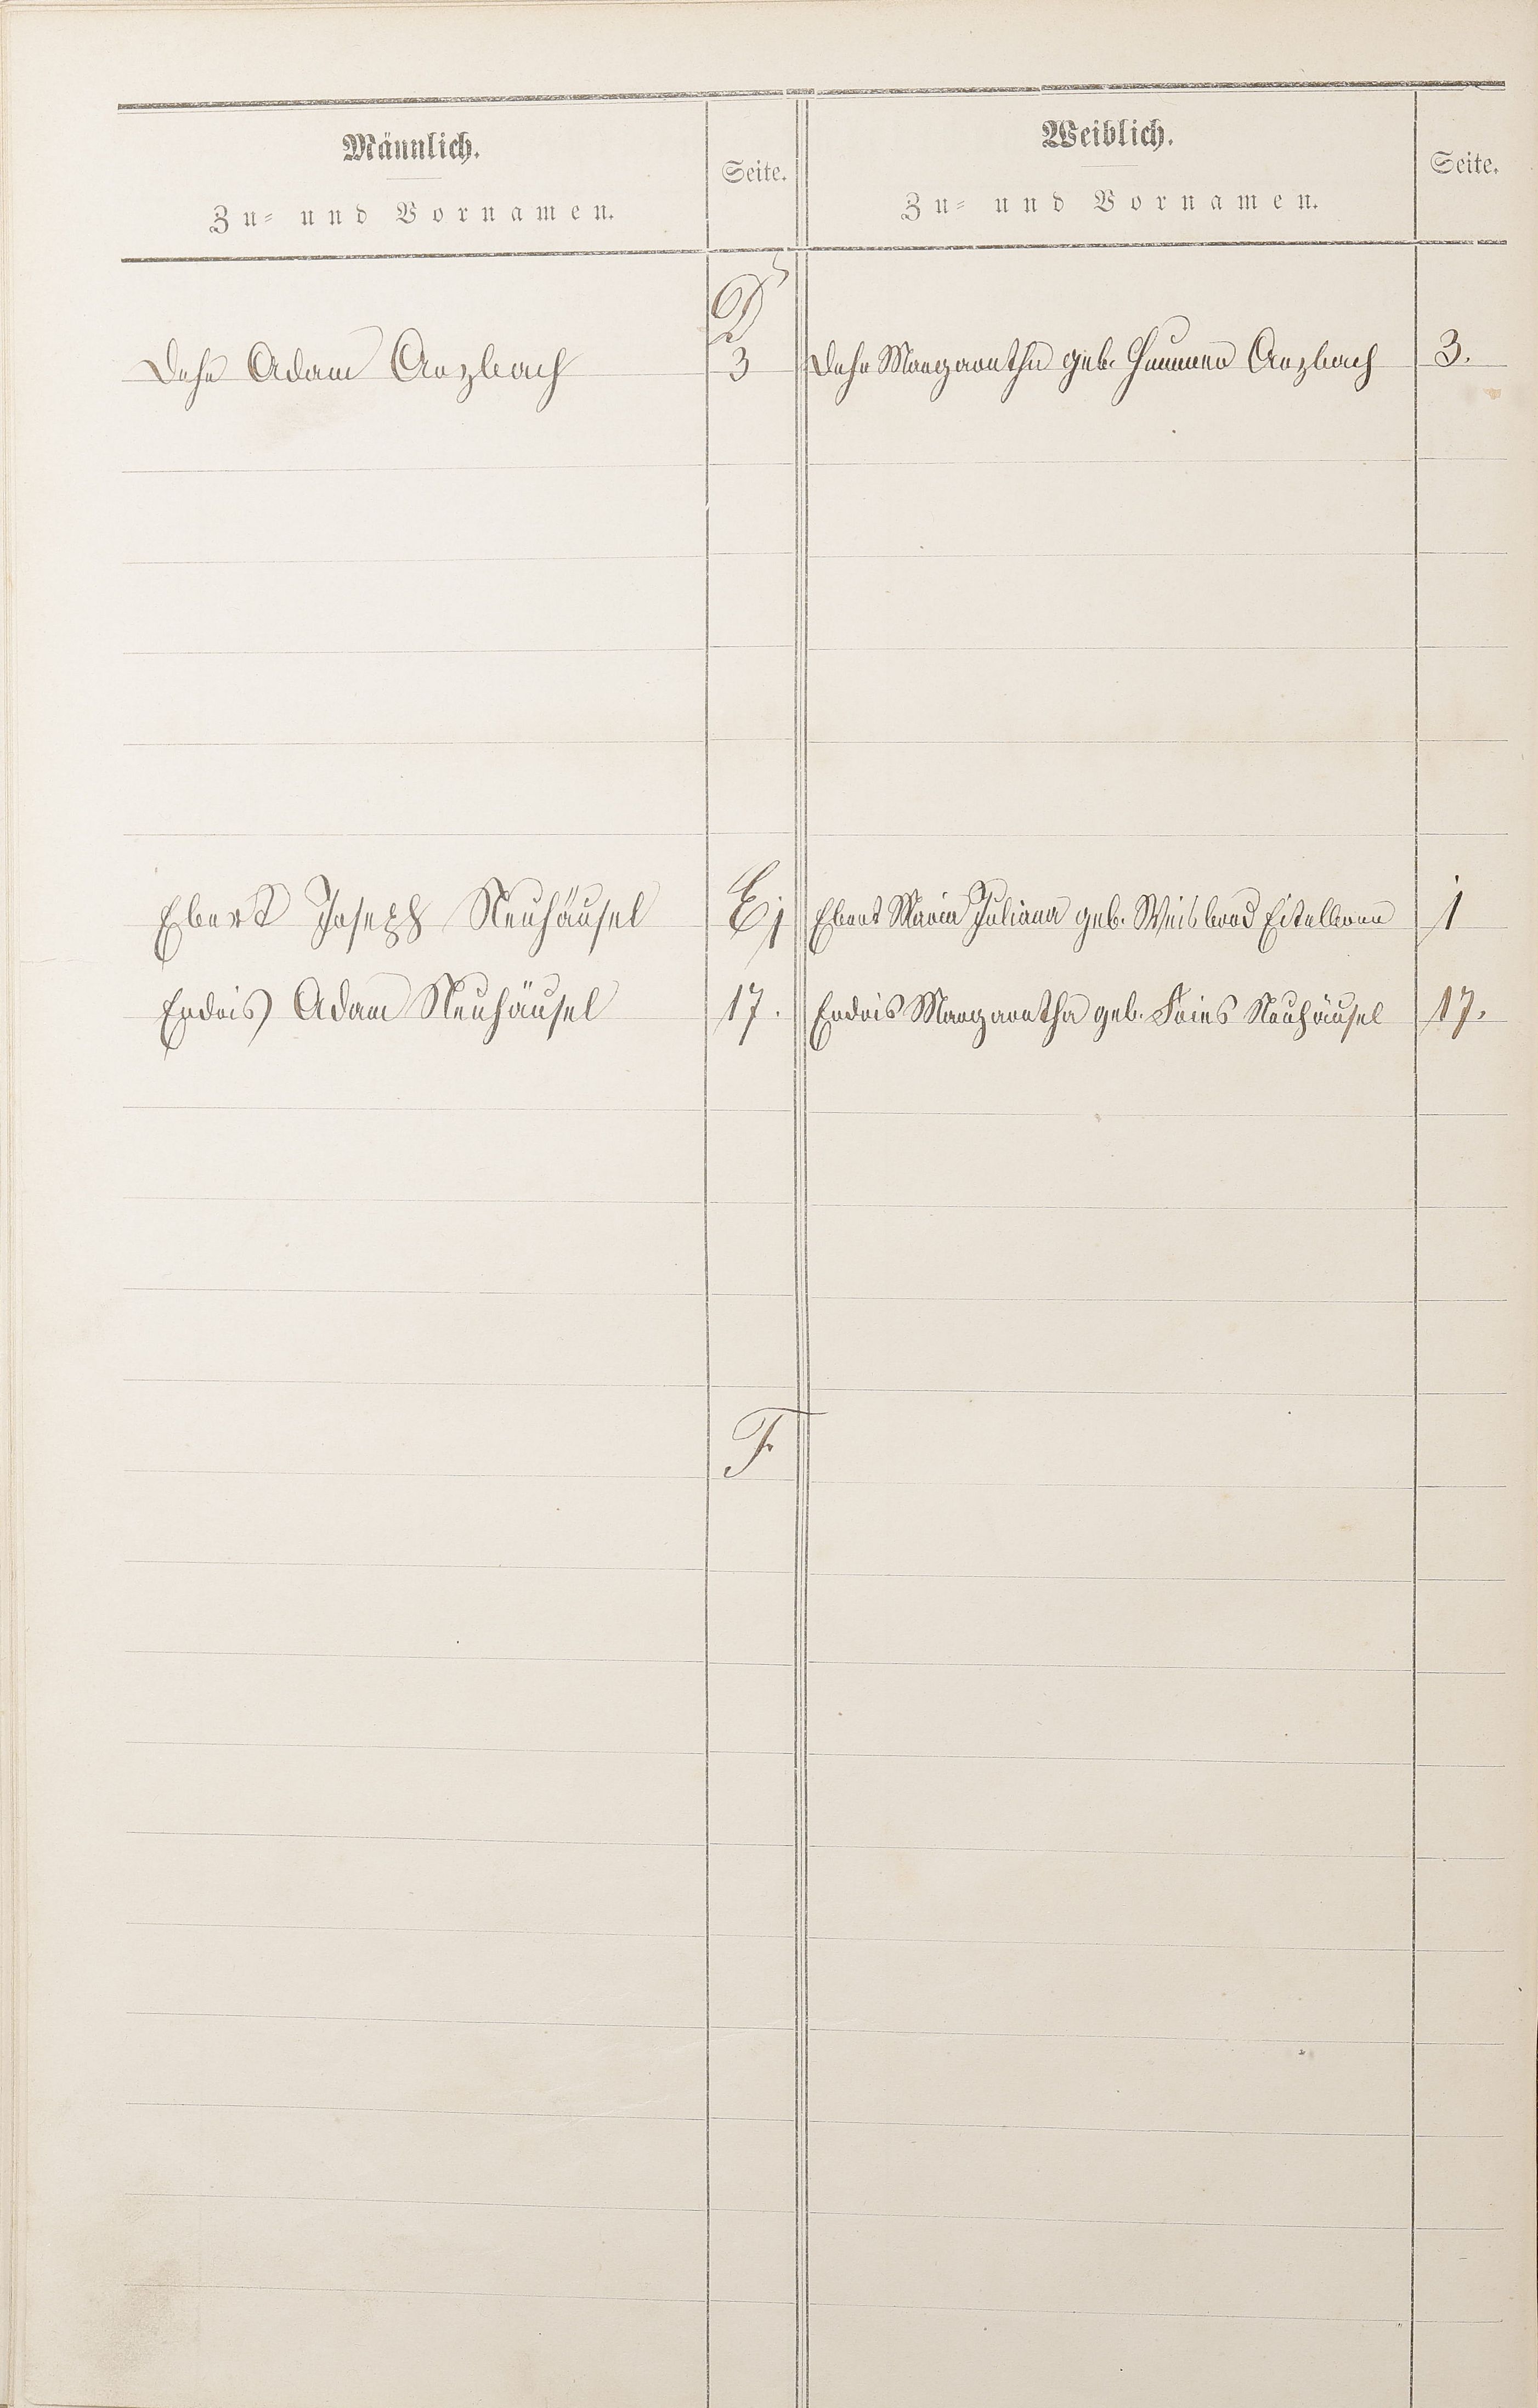 Männlich.
Zu- und Vornamen.
Seite.
Weiblich.
Zu- und Vornamen.
Seite.
D
Dehe Adam Arzbach 3 Dehe Margaretha geb. Hammer Arzbach 3.
E
Ebert Joseph Neuhäusel 1 Ebert Maria Juliana geb. Weisbrod Eitelborn 1
Endris Adam Neuhäusel 17. Endris Margaretha geb. Fries Neuhäusel 17.
F